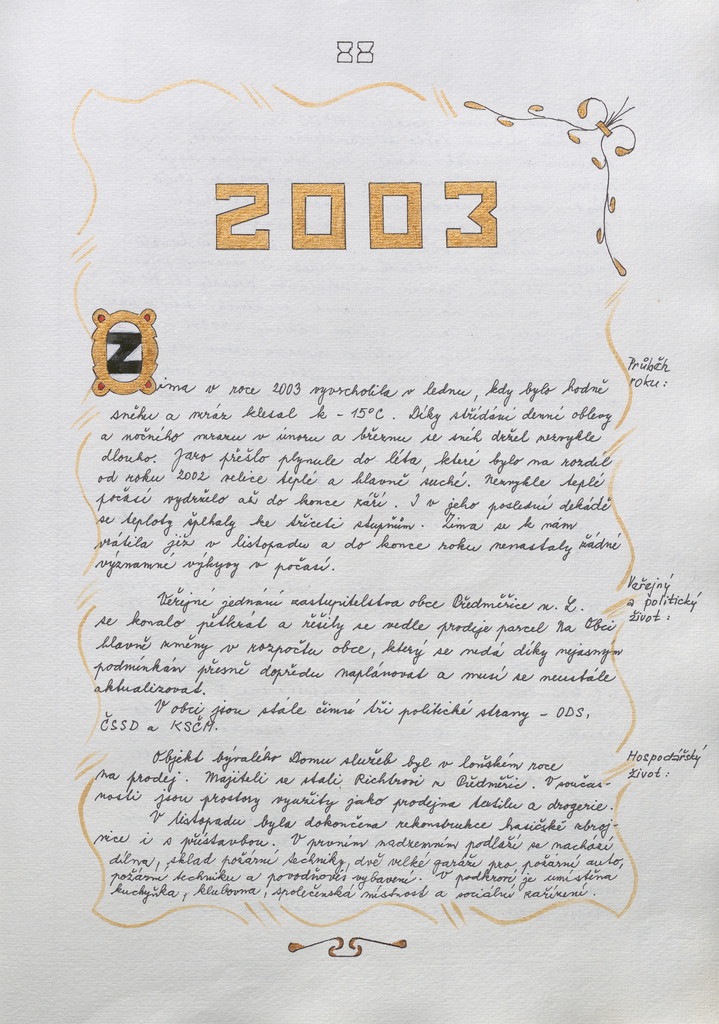 88
2003
Průběh
roku:
Zima v roce 2003 vyvrcholila v lednu, kdy bylo hodně
sněhu a mráz klesal k -15°C. Díky střídání denní oblevy
a nočního mrazu v únoru a březnu se sníh držel nezvykle
dlouho. Jaro přešlo plynule do léta, které bylo na rozdíl
od roku 2002 velice teplé a hlavně suché. Nezvykle teplé
počasí vydrželo až do konce září. I v jeho poslední dekádě
se teploty šplhaly ke třiceti stupňům. Zima se k nám
vrátila již v listopadu a do konce roku nenastaly žádné
významné výkyvy v počasí.
Veřejný
a politický
život:
Veřejné jednání zastupitelstva obce Předměřice n. L.
se konalo pětkrát a řešily se vedle prodeje parcel Na Obci
hlavně změny v rozpočtu obce, který se nedá díky nejasným
podmínkám přesně dopředu naplánovat a musí se neustále
aktualizovat.
V obci jsou stále činné tři politické strany - ODS,
ČSSD a KSČM.
Hospodářský
život:
Objekt bývalého Domu služeb byl v loňském roce
na prodej. Majiteli se stali Richtrovi z Předměřic. V součas-
nosti jsou prostory využity jako prodejna textilu a drogerie.
V listopadu byla dokončena rekonstrukce hasičské zbroj-
nice i s přístavbou. V prvním nadzemním podlaží se nachází
dílna, sklad požární techniky, dvě velké garáže pro požární auto,
požární techniku a povodňové vybavení. V podkroví je umístěna
kuchyňka, klubovna, společenská místnost a sociální zařízení.